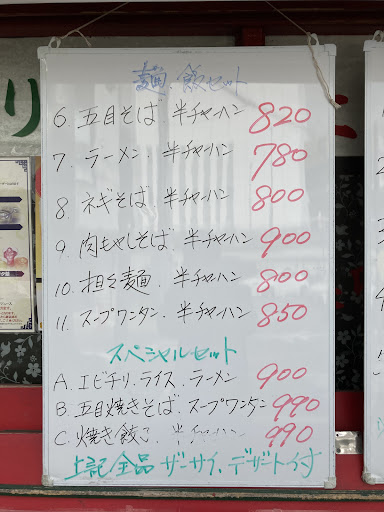 麺、飯セット
6. 五目そば. 半チャーハン 820
7. ラーメン. 半チャーハン 780
8. ネギそば. 半チャーハン 800
9. 肉もやしそば. 半チャーハン 900
10. 担々麺. 半チャーハン 800
11. スープワンタン. 半チャーハン 850
スペシャルセット
A. エビチリ. ライス. ラーメン 900
B. 五目焼きそば. スープワンタン 990
C. 焼き餃子. 半チャーハン 990
上記全品 ザーサイ、デザート付